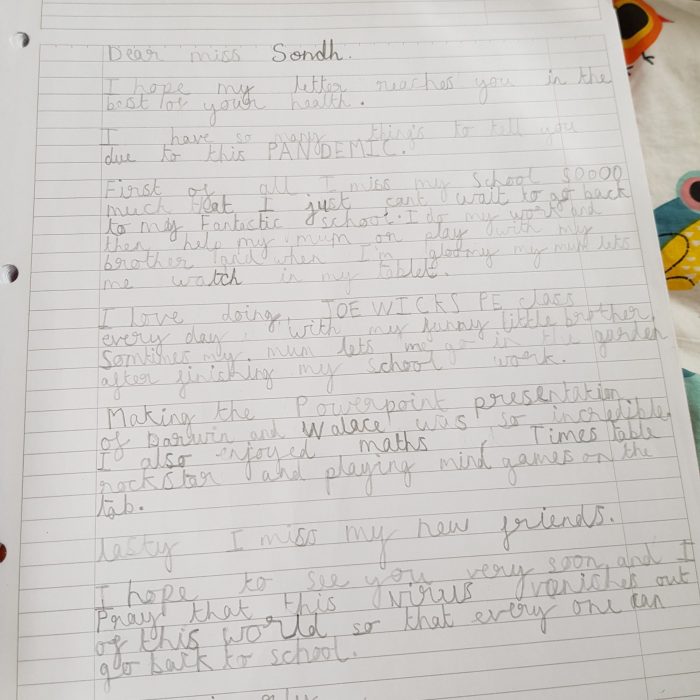 Dear miss Sondh.
I hope my letter reaches you in the
best of your health.
I have so many things to tell you
due to this PANDEMIC.
First of all I miss my School SOOOO
much that I just can't wait to go back
to my Fantastic school. I do my work and
then help my mum or play with my
brother and when I'm gloomy my mum lets
me watch in my tablet.
I love doing JOE WICKS PE class
every day, with my funny little brother,
Somtimes my mum lets me go in the garden
after finishing my school work.
Making the Powerpoint presentation
of Darwin and Walace was so incredible.
I also enjoyed maths, Times table
rockstar and playing mind games on the
tab.
lasty I miss my new friends.
I hope to see you very soon, and I
Pray that this VIRUS vaniches out
of this world so that every one can
go back to school.